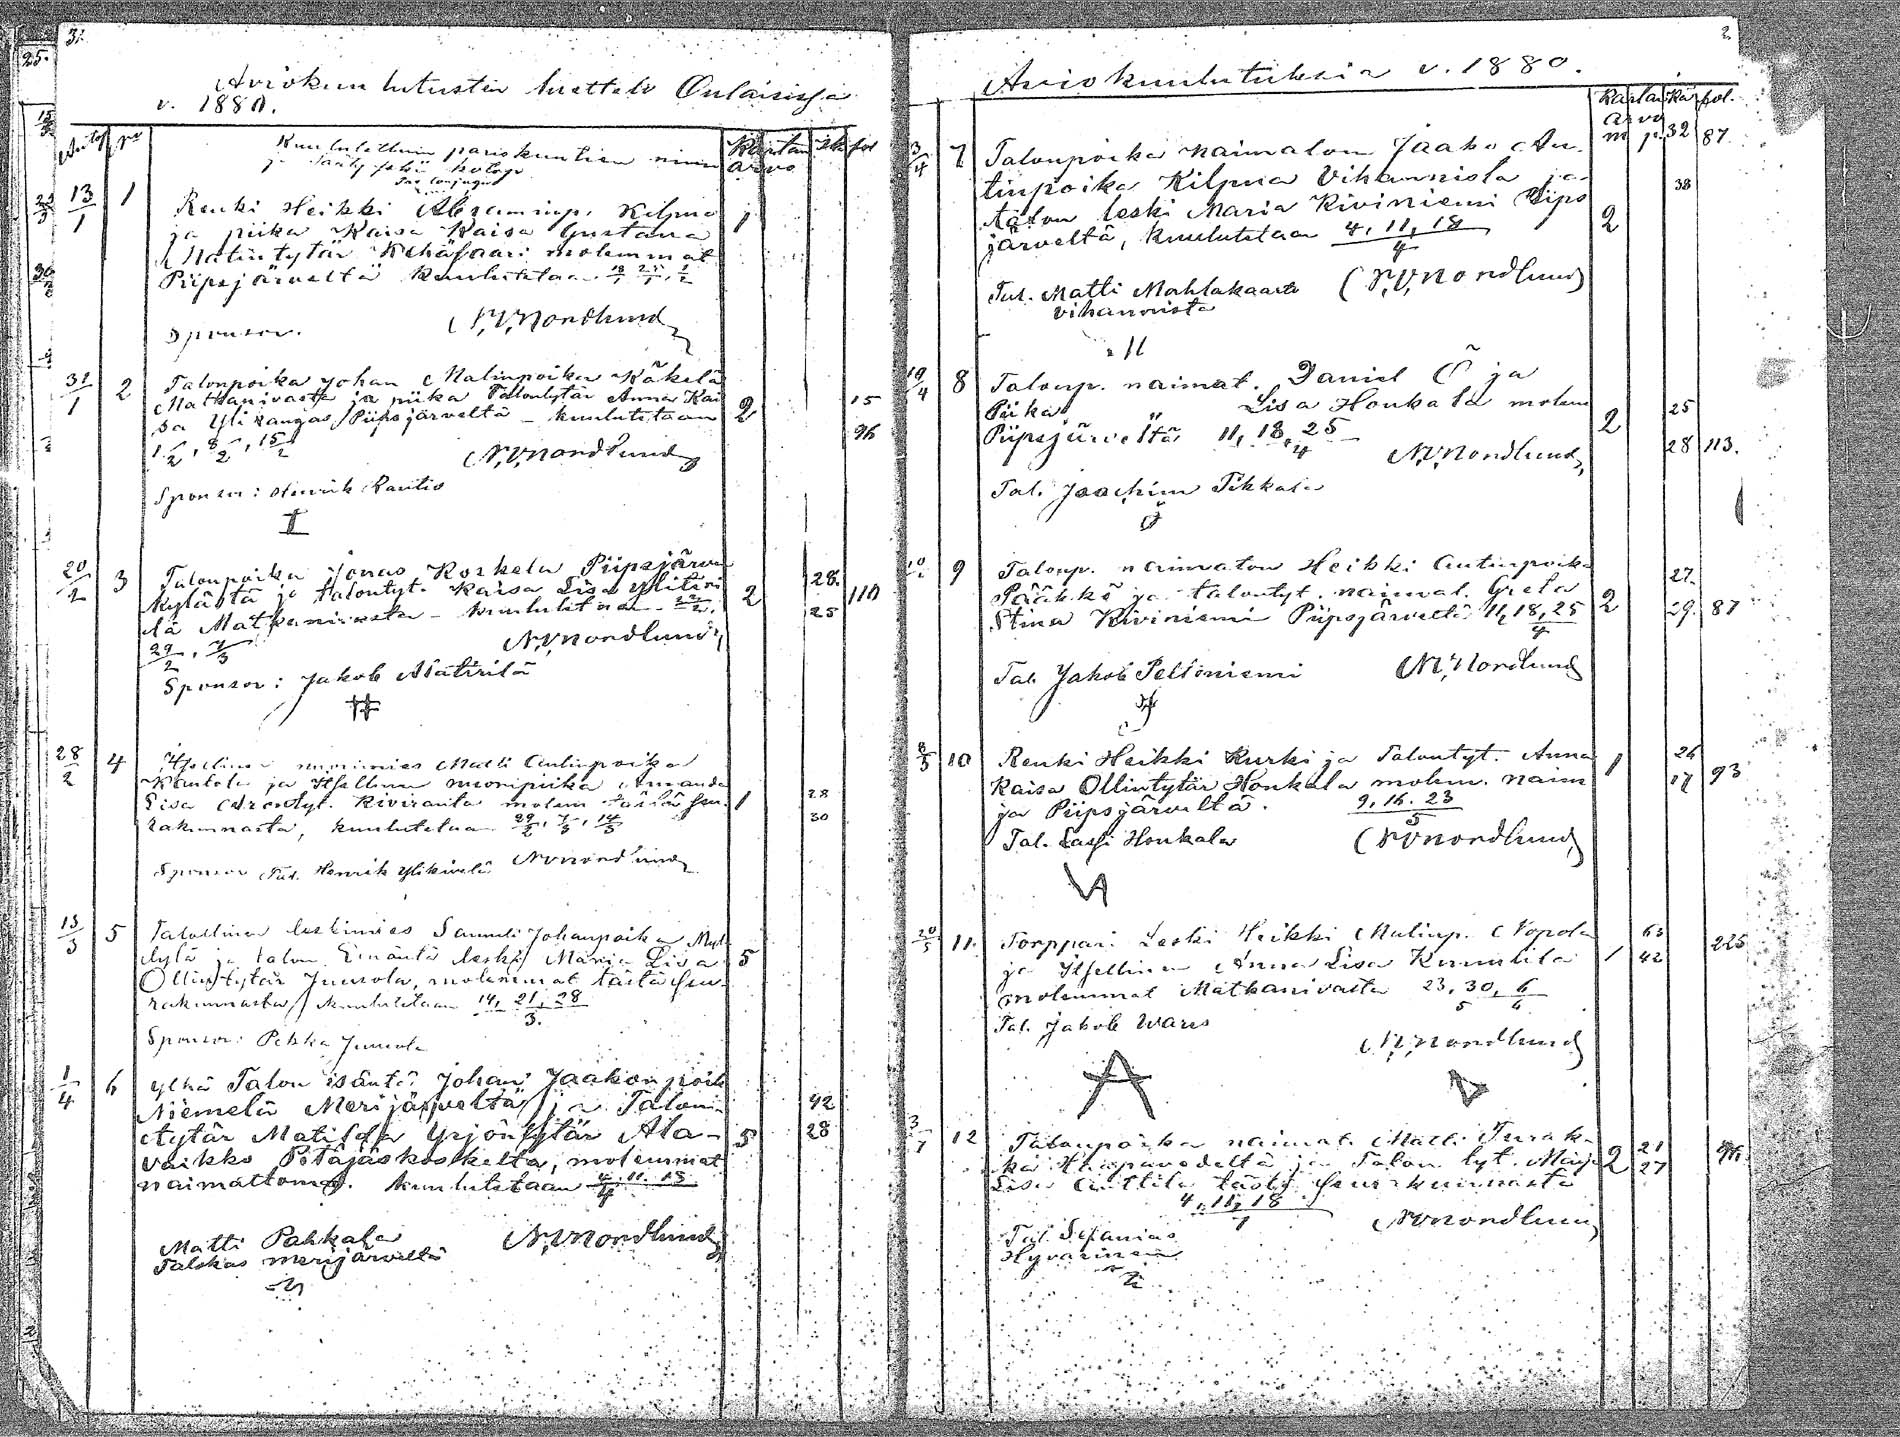 31.
Aviokuulutusten luettelo Oulaisissa
v. 1880.
Kuulutettuin pariskuntien nimi
ja sääty sekä kotopa
Kartan arvo ik fol
13/1 1 Renki Heikki Abraminp. Kilpua 1
ja piika Kaisa Gustava
Matintytär Kehäsaari molemmat
Piipsjärveltä kuulutetaan
Sponsor. N.V. Nordlund
31/1 2 Talonpoika Johan Matinpoika Käkelä
Matkanivasta ja piika Talontytär Anna Kai 2 15
sa Ylikangas Piipsjärveltä – kuulutetaan 96
1/2, 8/2, 15/2 N.V. Nordlund
Sponsor: Henrik Rautio
20/2 3 Talonpoika Jonas Koskela Piipsjärven 28.
kylästä ja talontyt. Kaisa Lisa Ylitapi 2 110
lä Matkanivasta – kuulutetaan 22/2, 25
29/2, 7/3 N.V. Nordlund
Sponsor: Jakob Alatirilä
28/2 4 Itsellinen nuorimies Matti Antinpoika
Rautola ja Itsellinen nuoripiika Amanda
Lisa Arentyt. Kiviranta molem. tästä seu- 1 28
rakunnasta, kuulutetaan 29/2, 7/3, 14/3 30
Sponsor Tal. Henrik Ylikivelä N V Nordlund
13/3 5 Talollinen leskimies Samuli Johanpoika
ja talon Emäntä leski Maria Lisa 5
Ollintytär Junsola, molemmat tästä seu-
rakunnasta, kuulutetaan 14, 21, 28/3.
Sponsor: Pekka Junsola
1/4 6 Ylkä Talon isäntä Johan Jaakonpoik
Niemelä Merijärveltä ja Talon- 42
tytär Matilda Yrjöntytär Ala- 5 28
vaikko Petäjäskoskelta, molemmat
naimattomia. kuulutetaan 4, 11, 18/4
Matti Pahkala N.V. Nordlund
Talokas Merijärveltä
2
Aviokuulutuksia v. 1880.
Kartan arvo m p. ik fol.
3/4 7 Talonpoika naimaton Jaako An- 32 87.
tinpoika Kilpua Vihannista ja 38
talon leski Maria Kiviniemi Piips 2
järveltä, kuulutetaan 4, 11, 18/4
Tal. Matti Mahlakaarto N.V. Nordlund
Vihannista
10/4 8 Talonp. naimat. Daniel Ö ja
Piika " Lisa Honkala molem 2 25
Piipsjärveltä 11, 18, 25/4 28 113.
N.V. Nordlund
Tal. Joachim Tikkala
9 Talonp. naimaton Heikki Antinpoika 27.
Pääkkö ja talontyt. naimat. Greta 2
Stina Kiviniemi Piipsjärveltä 11, 18, 25/4 29. 87
Tal. Jakob Peltoniemi N.V. Nordlund
8/5 10 Renki Heikki Kurki ja Talontyt. Anna 26
Kaisa Ollintytär Honkala molem. naim 1 17 93
ja Piipsjärveltä. 9, 16, 23/5
Tal. Lassi Honkala N V Nordlund
20/5 11. Torppari Leski Heikki Matinp. Nopola 63 225
ja Itsellinen Anna Lisa 1 42
molemmat Matkanivasta 23, 30, 6
Tal. Jakob Wares
N.V. Nordlund
3/7 12 Talonpoika naimat. Matti Turak-
ka Haapavedeltä ja Talon tyt. Maija 2 21 96.
Lisa Anttila tästä seurakunnasta 27
4, 11, 18/7
Tal. Sefanias N V Nordlund
Hyvärinen